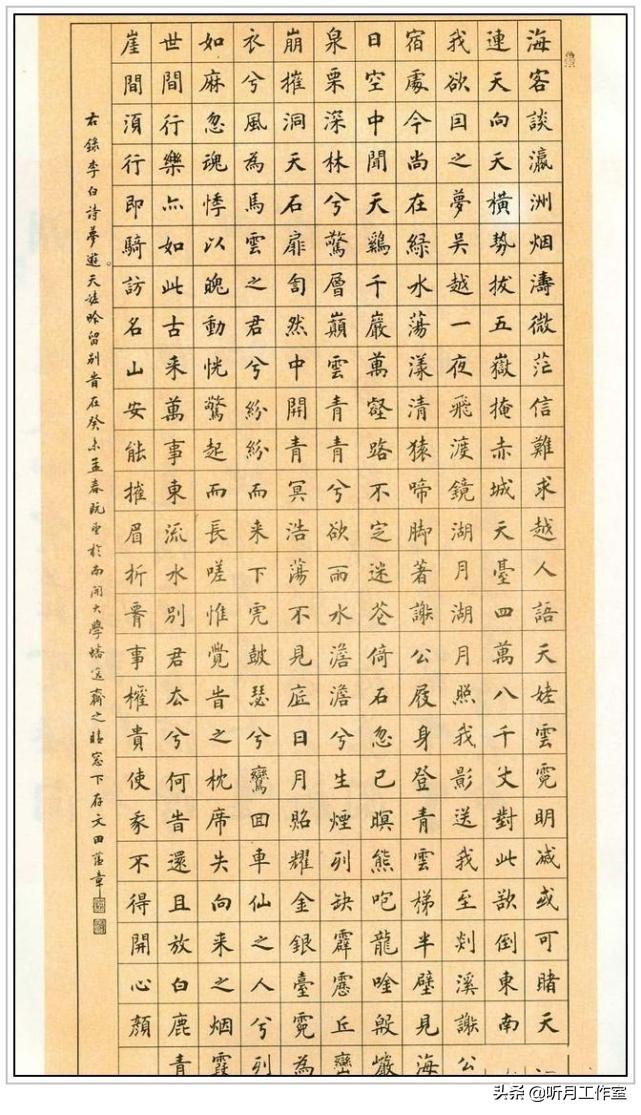 海客談瀛洲烟濤微茫信難求越人語天姥雲霓明滅或可睹天
連天向天橫勢拔五嶽掩赤城天臺四萬八千丈對此欲倒東南
我欲因之夢吳越一夜飛渡鏡湖月湖月照我影送我至剡溪謝公
宿處今尚在綠水蕩漾清猿啼脚著謝公屐身登青雲梯半壁見海
日空中聞天鷄千巖萬壑路不定迷花倚石忽已暝熊咆龍吟殷巖
泉栗深林兮驚層巔雲青青兮欲雨水澹澹兮生煙列缺霹靂丘巒
崩摧洞天石扉訇然中開青冥浩蕩不見底日月照耀金銀臺霓為
衣兮風為馬雲之君兮紛紛而来下虎鼓瑟兮鸞回車仙之人兮列
如麻忽魂悸以魄動恍驚起而長嗟惟覺旹之枕席失向来之烟霞
世間行樂亦如此古来萬事東流水別君去兮何旹還且放白鹿青
崖間須行即騎訪名山安能摧眉折腰事權貴使我不得開心顏
右錄李白詩夢遊天姥吟留別旹在癸未孟春於南開大學齋之晴窓下存文田蘊章
头条 @听月工作室